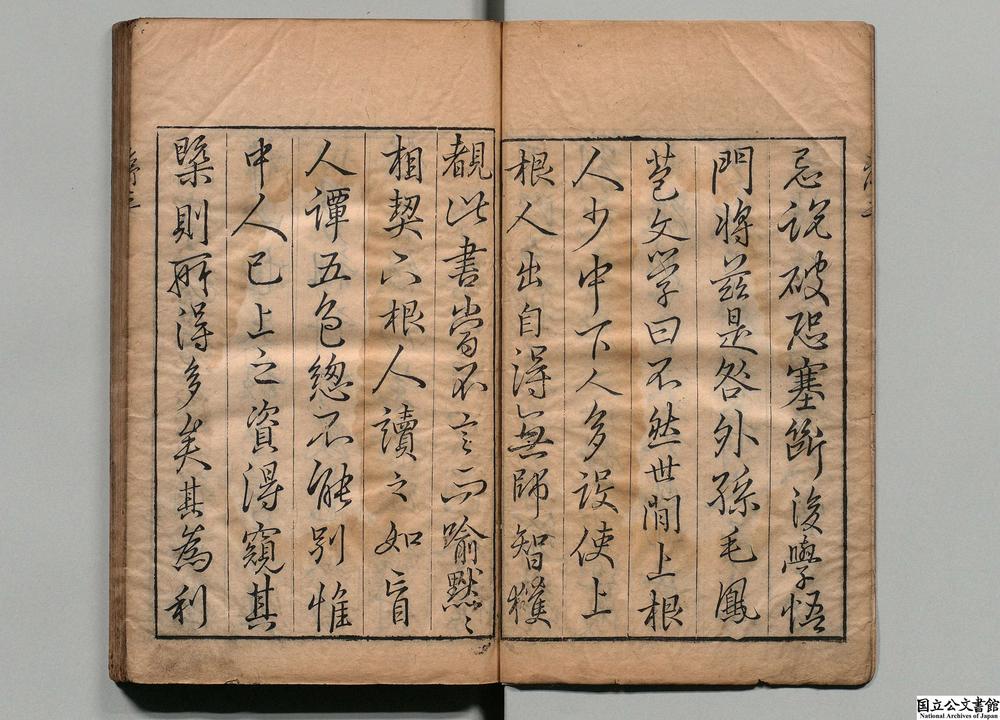 忌說破恐塞斷後學悟
門將茲是咎外孫毛鳳
苞文學曰不然世間上根
人少中下人多設使上
根人出自得無師智獲
覩此書當不言而喻默〻
相契下根人讀之如盲
人譚五色總不能別惟
中人已上之資得窺其
槩則所得多矣其為利
国立公文書館
National Archives of Japan